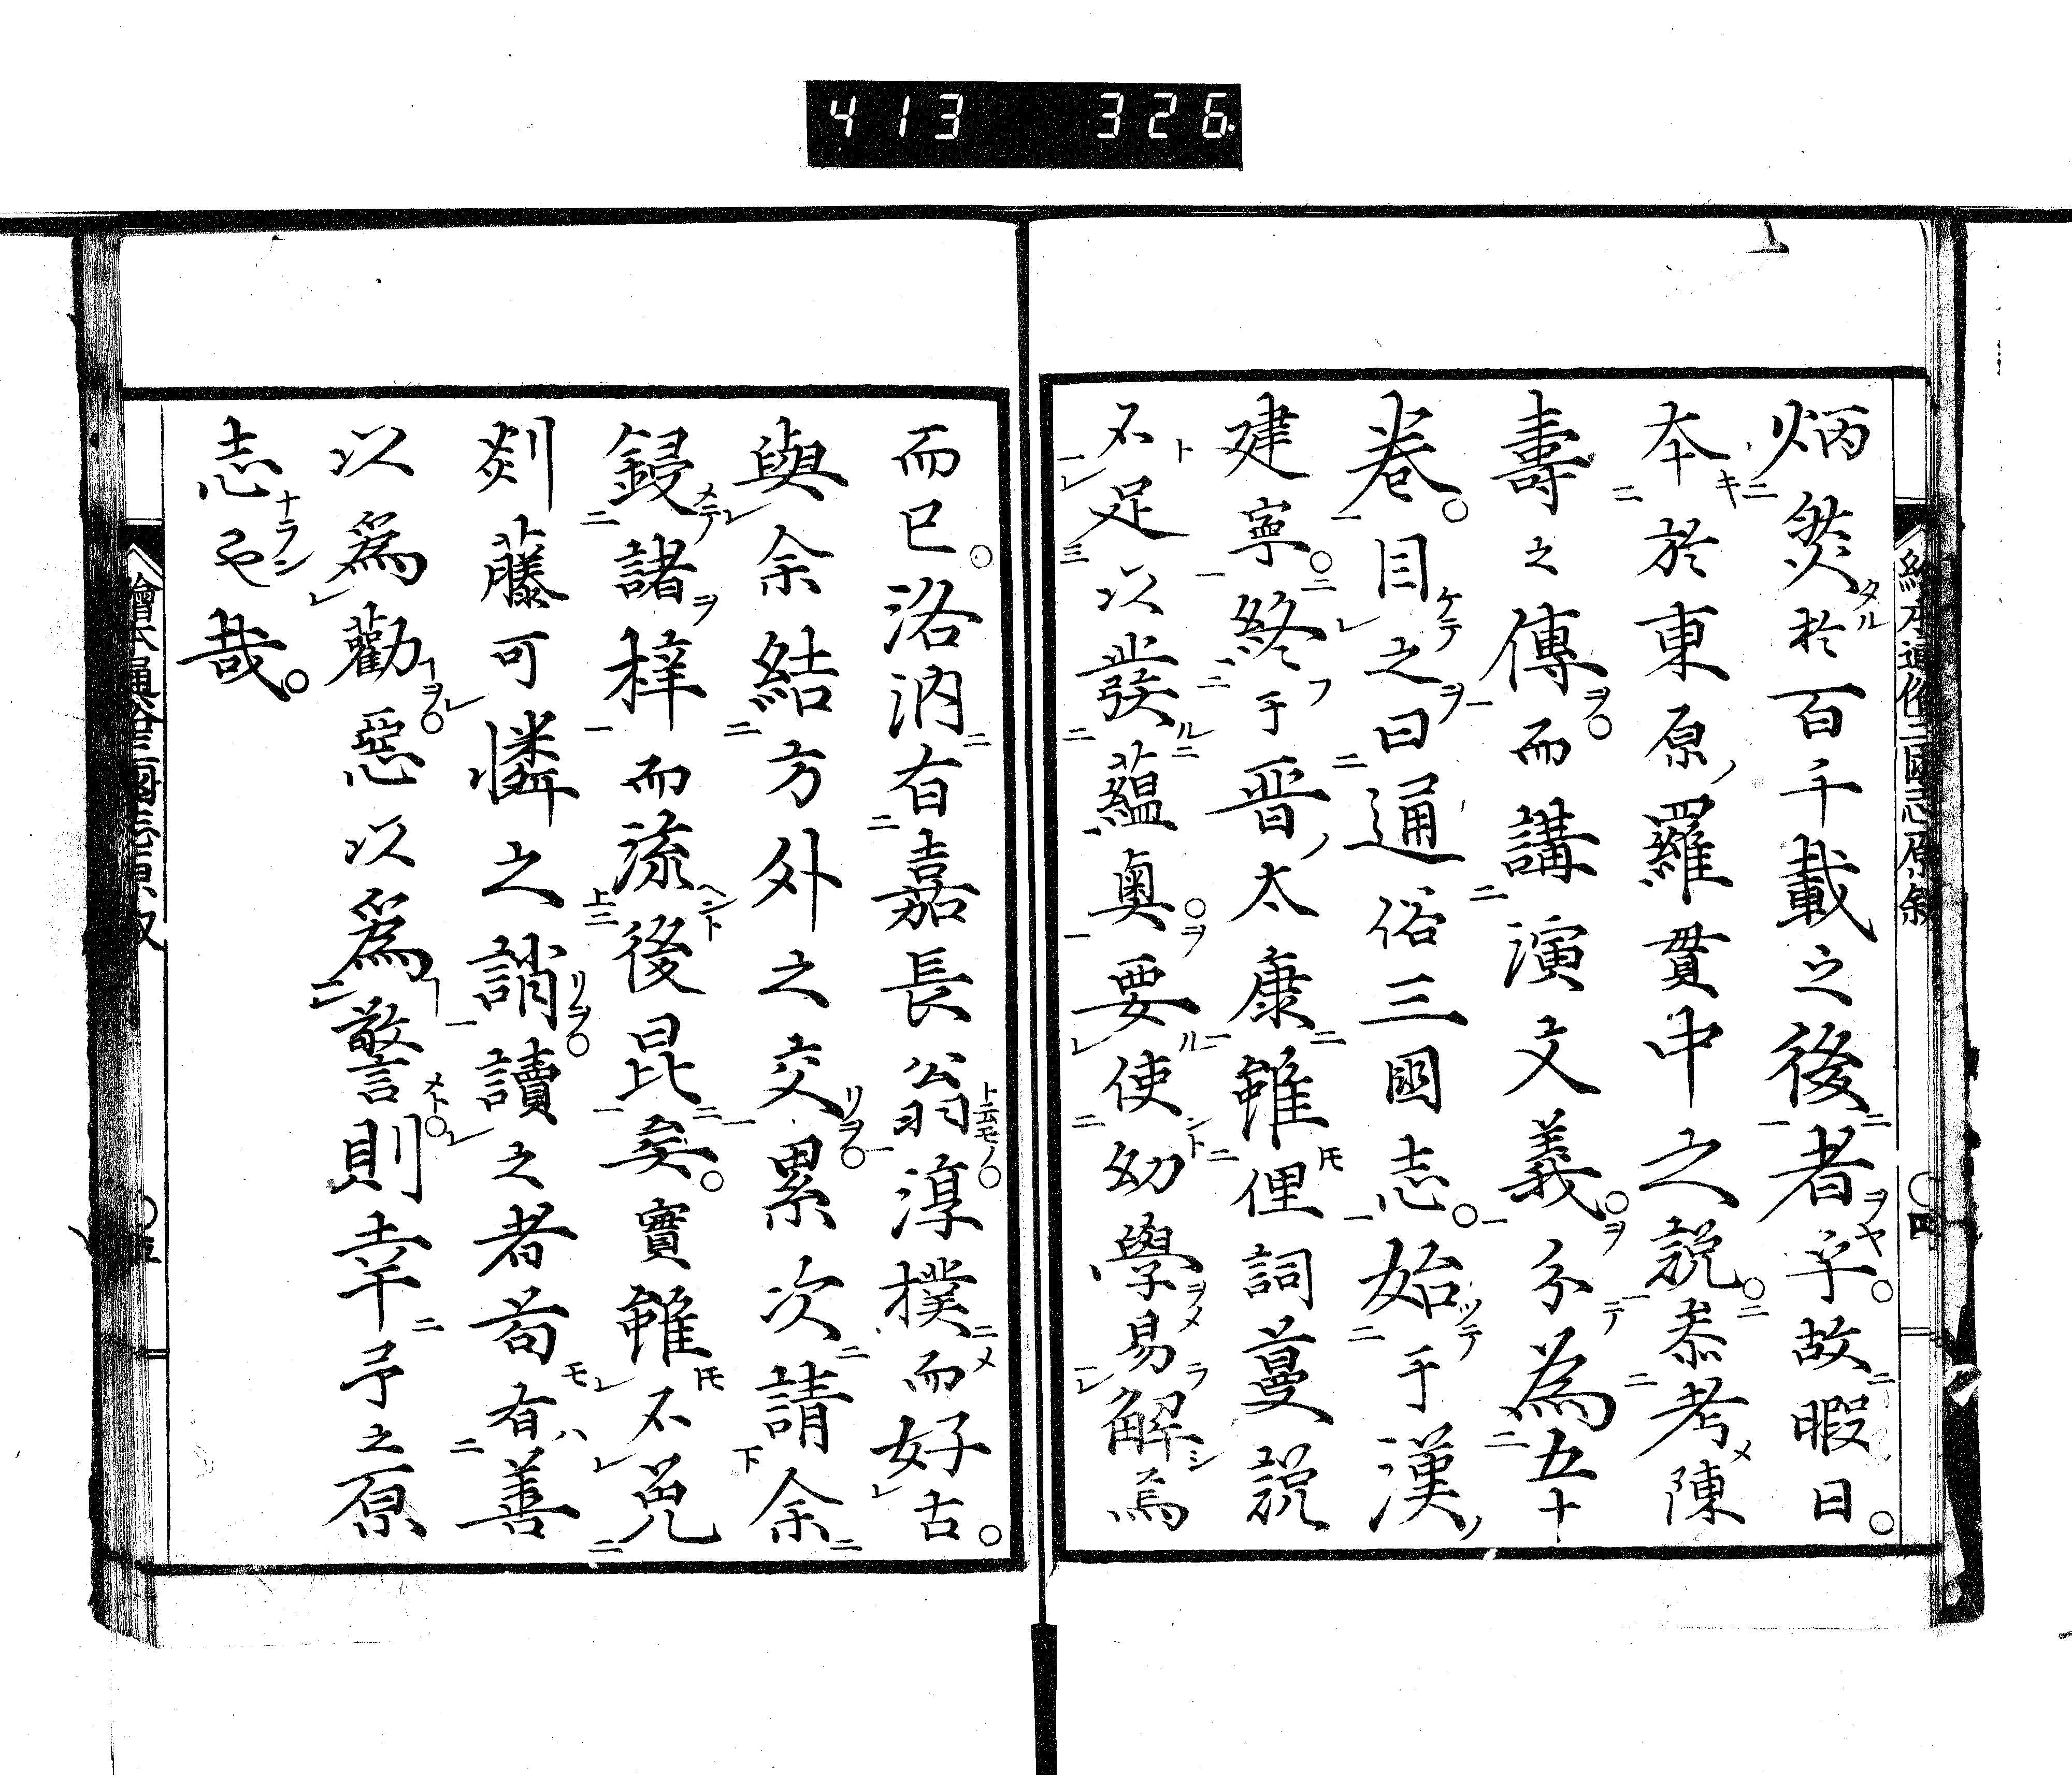 413 326
炳然於百千載之後者乎故暇日
本於東原羅貫中之說參考陳
壽之傳而講演文義分為五十
卷目之曰通俗三國志始于漢
建寧終于晋太康雖俚詞蔓說
不足以發蘊奧要使幼學易解焉
而已洛汭有嘉長翁淳樸而好古
與余結方外之交累次請余
鋟諸梓而流後昆矣實雖不免
剡藤可憐之誚讀之者苟有善
以爲勸惡以爲警則幸予之原
志也哉